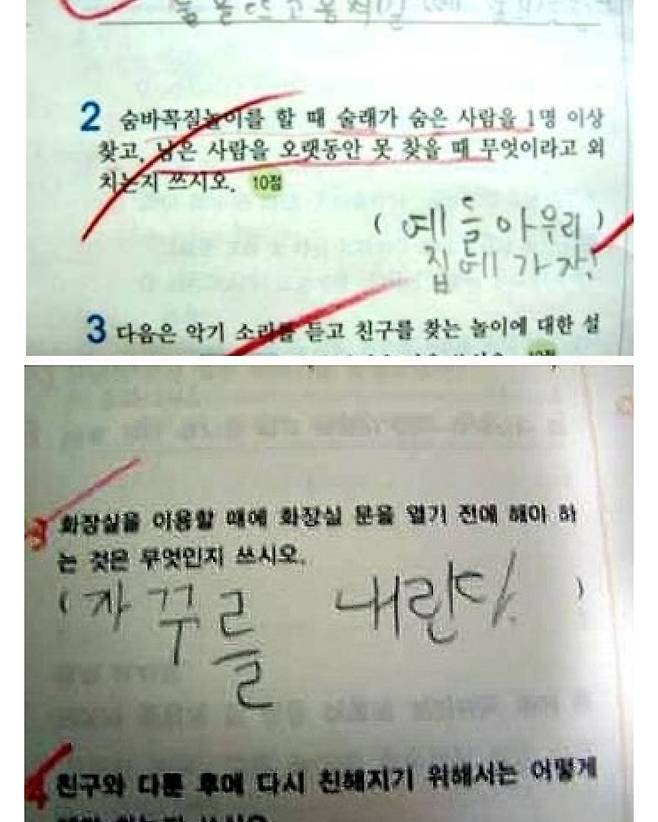 2 숨바꼭질놀이를 할 때 술래가 숨은 사람을 1명 이상
찾고, 남은 사람을 오랫동안 못 찾을 때 무엇이라고 외
치는지 쓰시오. 10점
( 예들아 우리 )
집에 가자!
3 다음은 악기 소리를 듣고 친구를 찾는 놀이에 대한 설
3 화장실을 이용할 때에 화장실 문을 열기 전에 해야 하
는 것은 무엇인지 쓰시오.
( 자꾸를 내린다. )
4 친구와 다툰 후에 다시 친해지기 위해서는 어떻게